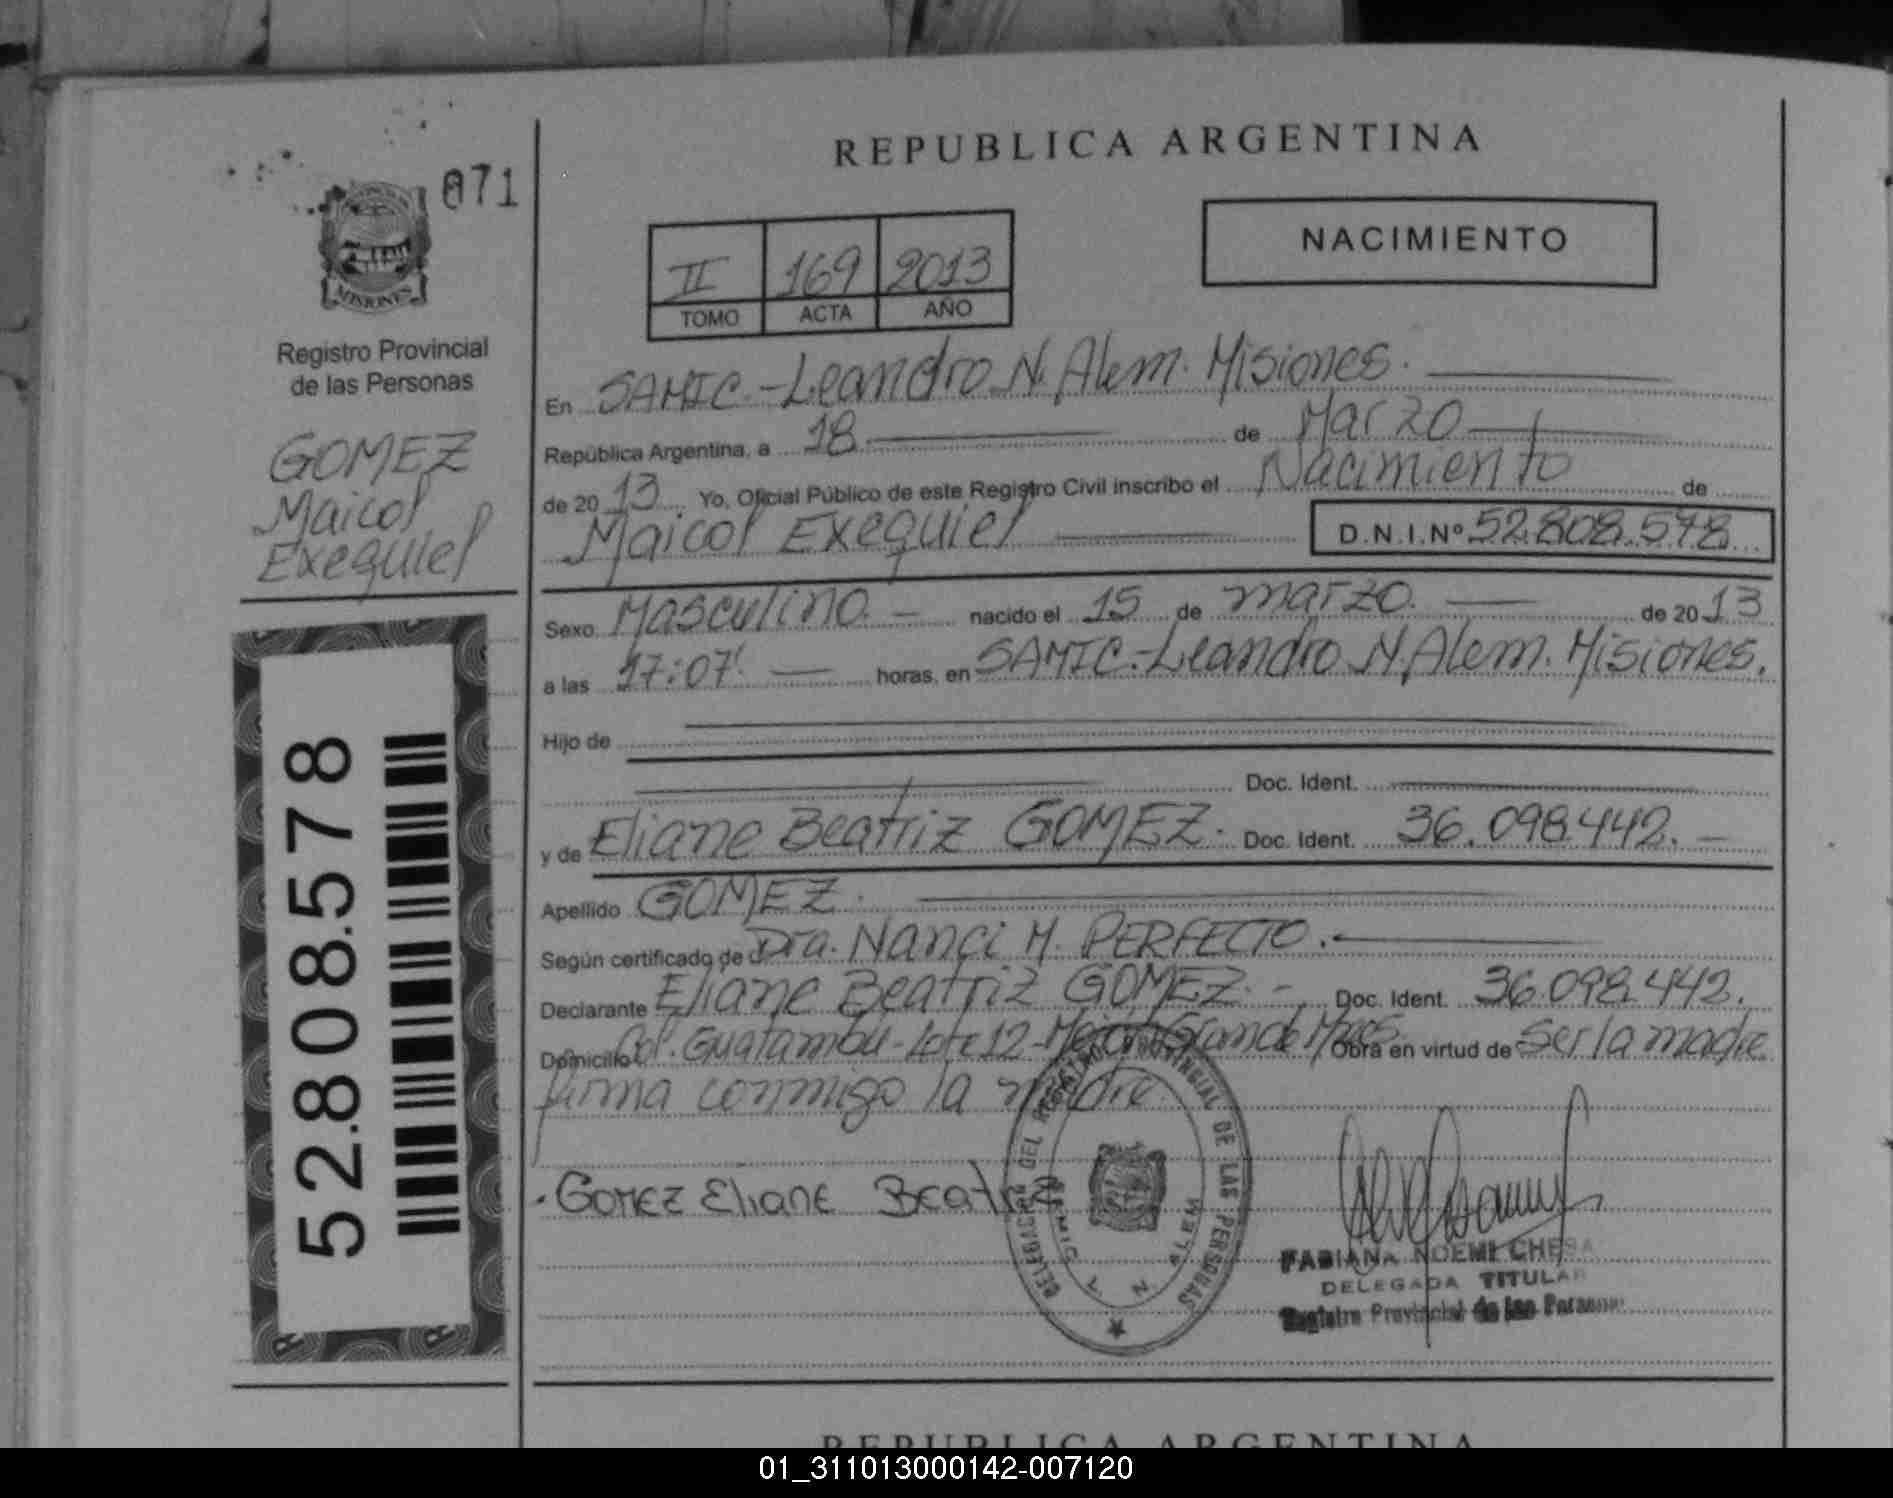 REPUBLICA ARGENTINA
071
MISIONES
Registro Provincial
de las Personas
GOMEZ
Maicol
Exequiel
52.808.578
NACIMIENTO
II 169 2013
TOMO ACTA AÑO
En SAMIC.-Leandro N. Alem. Misiones.
República Argentina, a 18 de Marzo
de 2013. Yo, Oficial Público de este Registro Civil inscribo el Nacimiento de
Maicol Exequiel D.N.I.Nº 52.808.578
Sexo Masculino.- nacido el 15 de marzo. de 2013
a las 17:07' horas, en SAMIC.-Leandro N. Alem. Misiones.
Hijo de
Doc. Ident.
y de Eliane Beatriz GOMEZ. Doc. Ident. 36.098.442.-
Apellido GOMEZ.
Según certificado de Dra. Nanci M. PERFECTO.
Declarante Eliane Beatriz GOMEZ.- Doc. Ident. 36.098.442.
Domicilio Col. Guatambu-Lote 12- Grande Obra en virtud de Ser la madre
firma conmigo la madre
Gomez Eliane Beatriz
DELEGACION DEL REGISTRO PROVINCIAL DE LAS PERSONAS
L N ALEM
FABIANA NOEMI
DELEGADA TITULAR
Registro Provincial de las Personas
REPUBLICA ARGENTINA
01_311013000142-007120